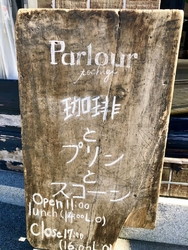 Parlour
珈琲
と
プリン
と
スコーン
Open 11:00
lunch (14:00L.O)
Close 17:00
(16:00L.O)